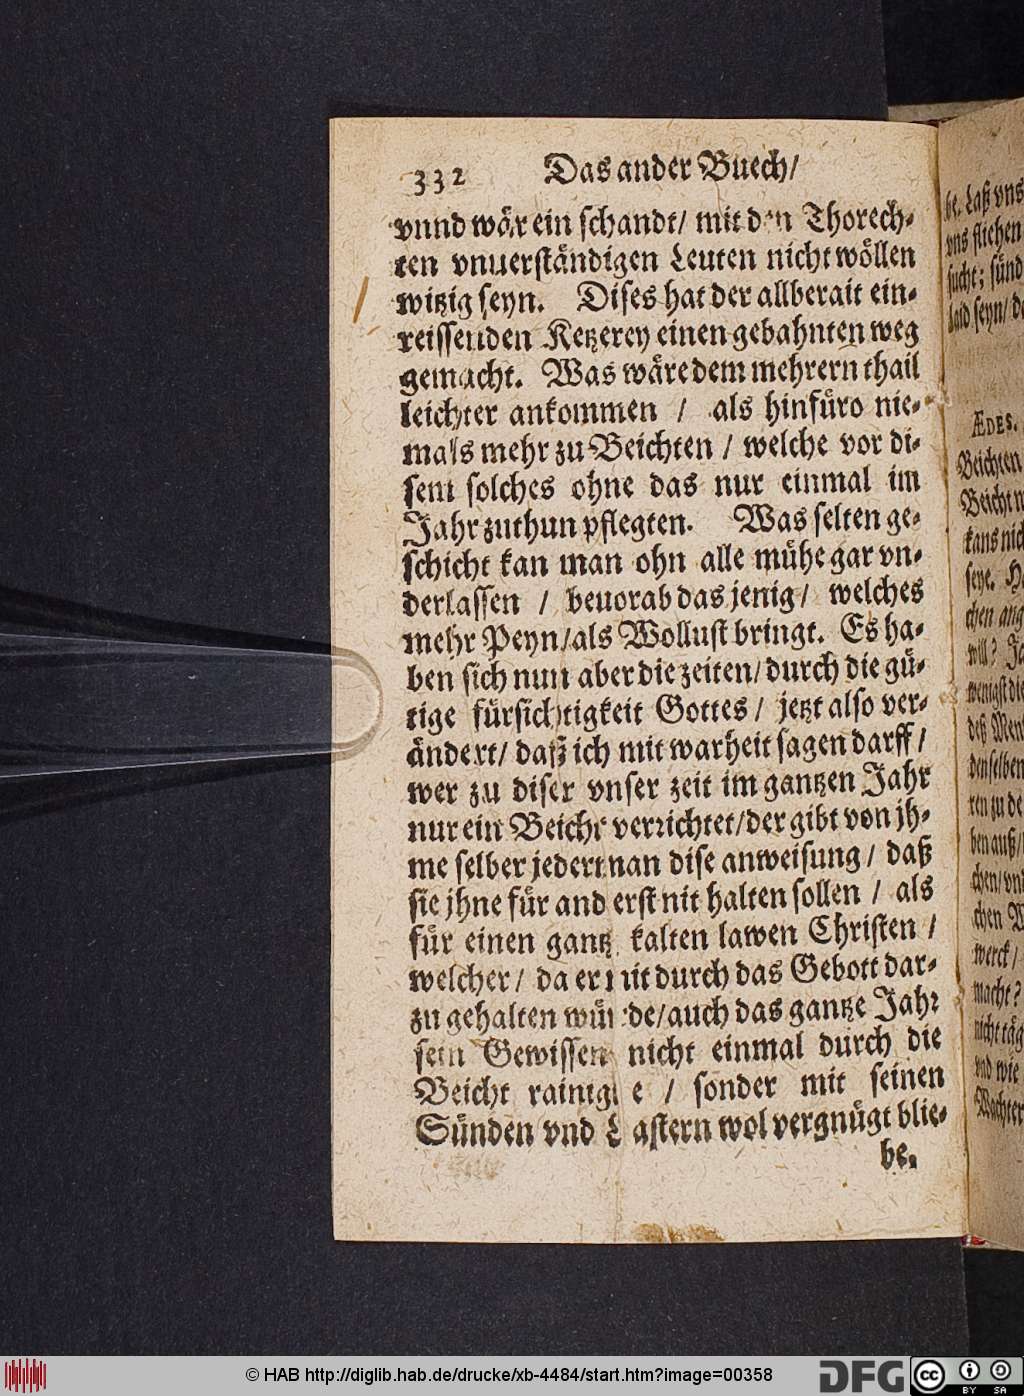 332 Das ander Buech/
vnnd wär ein schandt/ mit den Thorech-
ten vnuerständigen Leuten nicht wöllen
witzig seyn. Dises hat der allberait ein-
reissenden Ketzerey einen gebahnten weg
gemacht. Was wäre dem mehrern thail
leichter ankommen / als hinfüro nie-
mals mehr zu Beichten / welche vor di-
sem solches ohne das nur einmal im
Jahr zuthun pflegten. Was selten ge-
schicht kan man ohn alle mühe gar vn-
derlassen / beuorab das jenig / welches
mehr Peyn/als Wollust bringt. Es ha-
ben sich nun aber die zeiten/ durch die gü-
tige fürsichtigkeit Gottes / jetzt also ver-
ändert/ daß ich mit warheit sagen darff /
wer zu diser vnser zeit im gantzen Jahr
nur ein Beicht verrichtet/der gibt von jh-
me selber jederman dise anweisung / daß
sie jhne für and erst nit halten sollen / als
für einen gantz kalten lawen Christen /
welcher / da er nit durch das Gebott dar-
zu gehalten würde/auch das gantze Jahr
sein Gewissen nicht einmal durch die
Beicht rainigte / sonder mit seinen
Sünden vnd Lastern wol vergnügt blie-
be.
be. Laß vns
vns fliehen
sucht; sünd
Laid seyn/ de
ÆDES.
Beichten
Beicht n
kans nich
seye. H
chen ang
will? Ja
wenigst die
deß Men
denselben
ren zu de
ben auß/
chen/ vnd
chen W
werck /
macht?
nicht täg
vnd wie
Wachter
© HAB http://diglib.hab.de/drucke/xb-4484/start.htm?image=00358
DFG
cc
BY SA